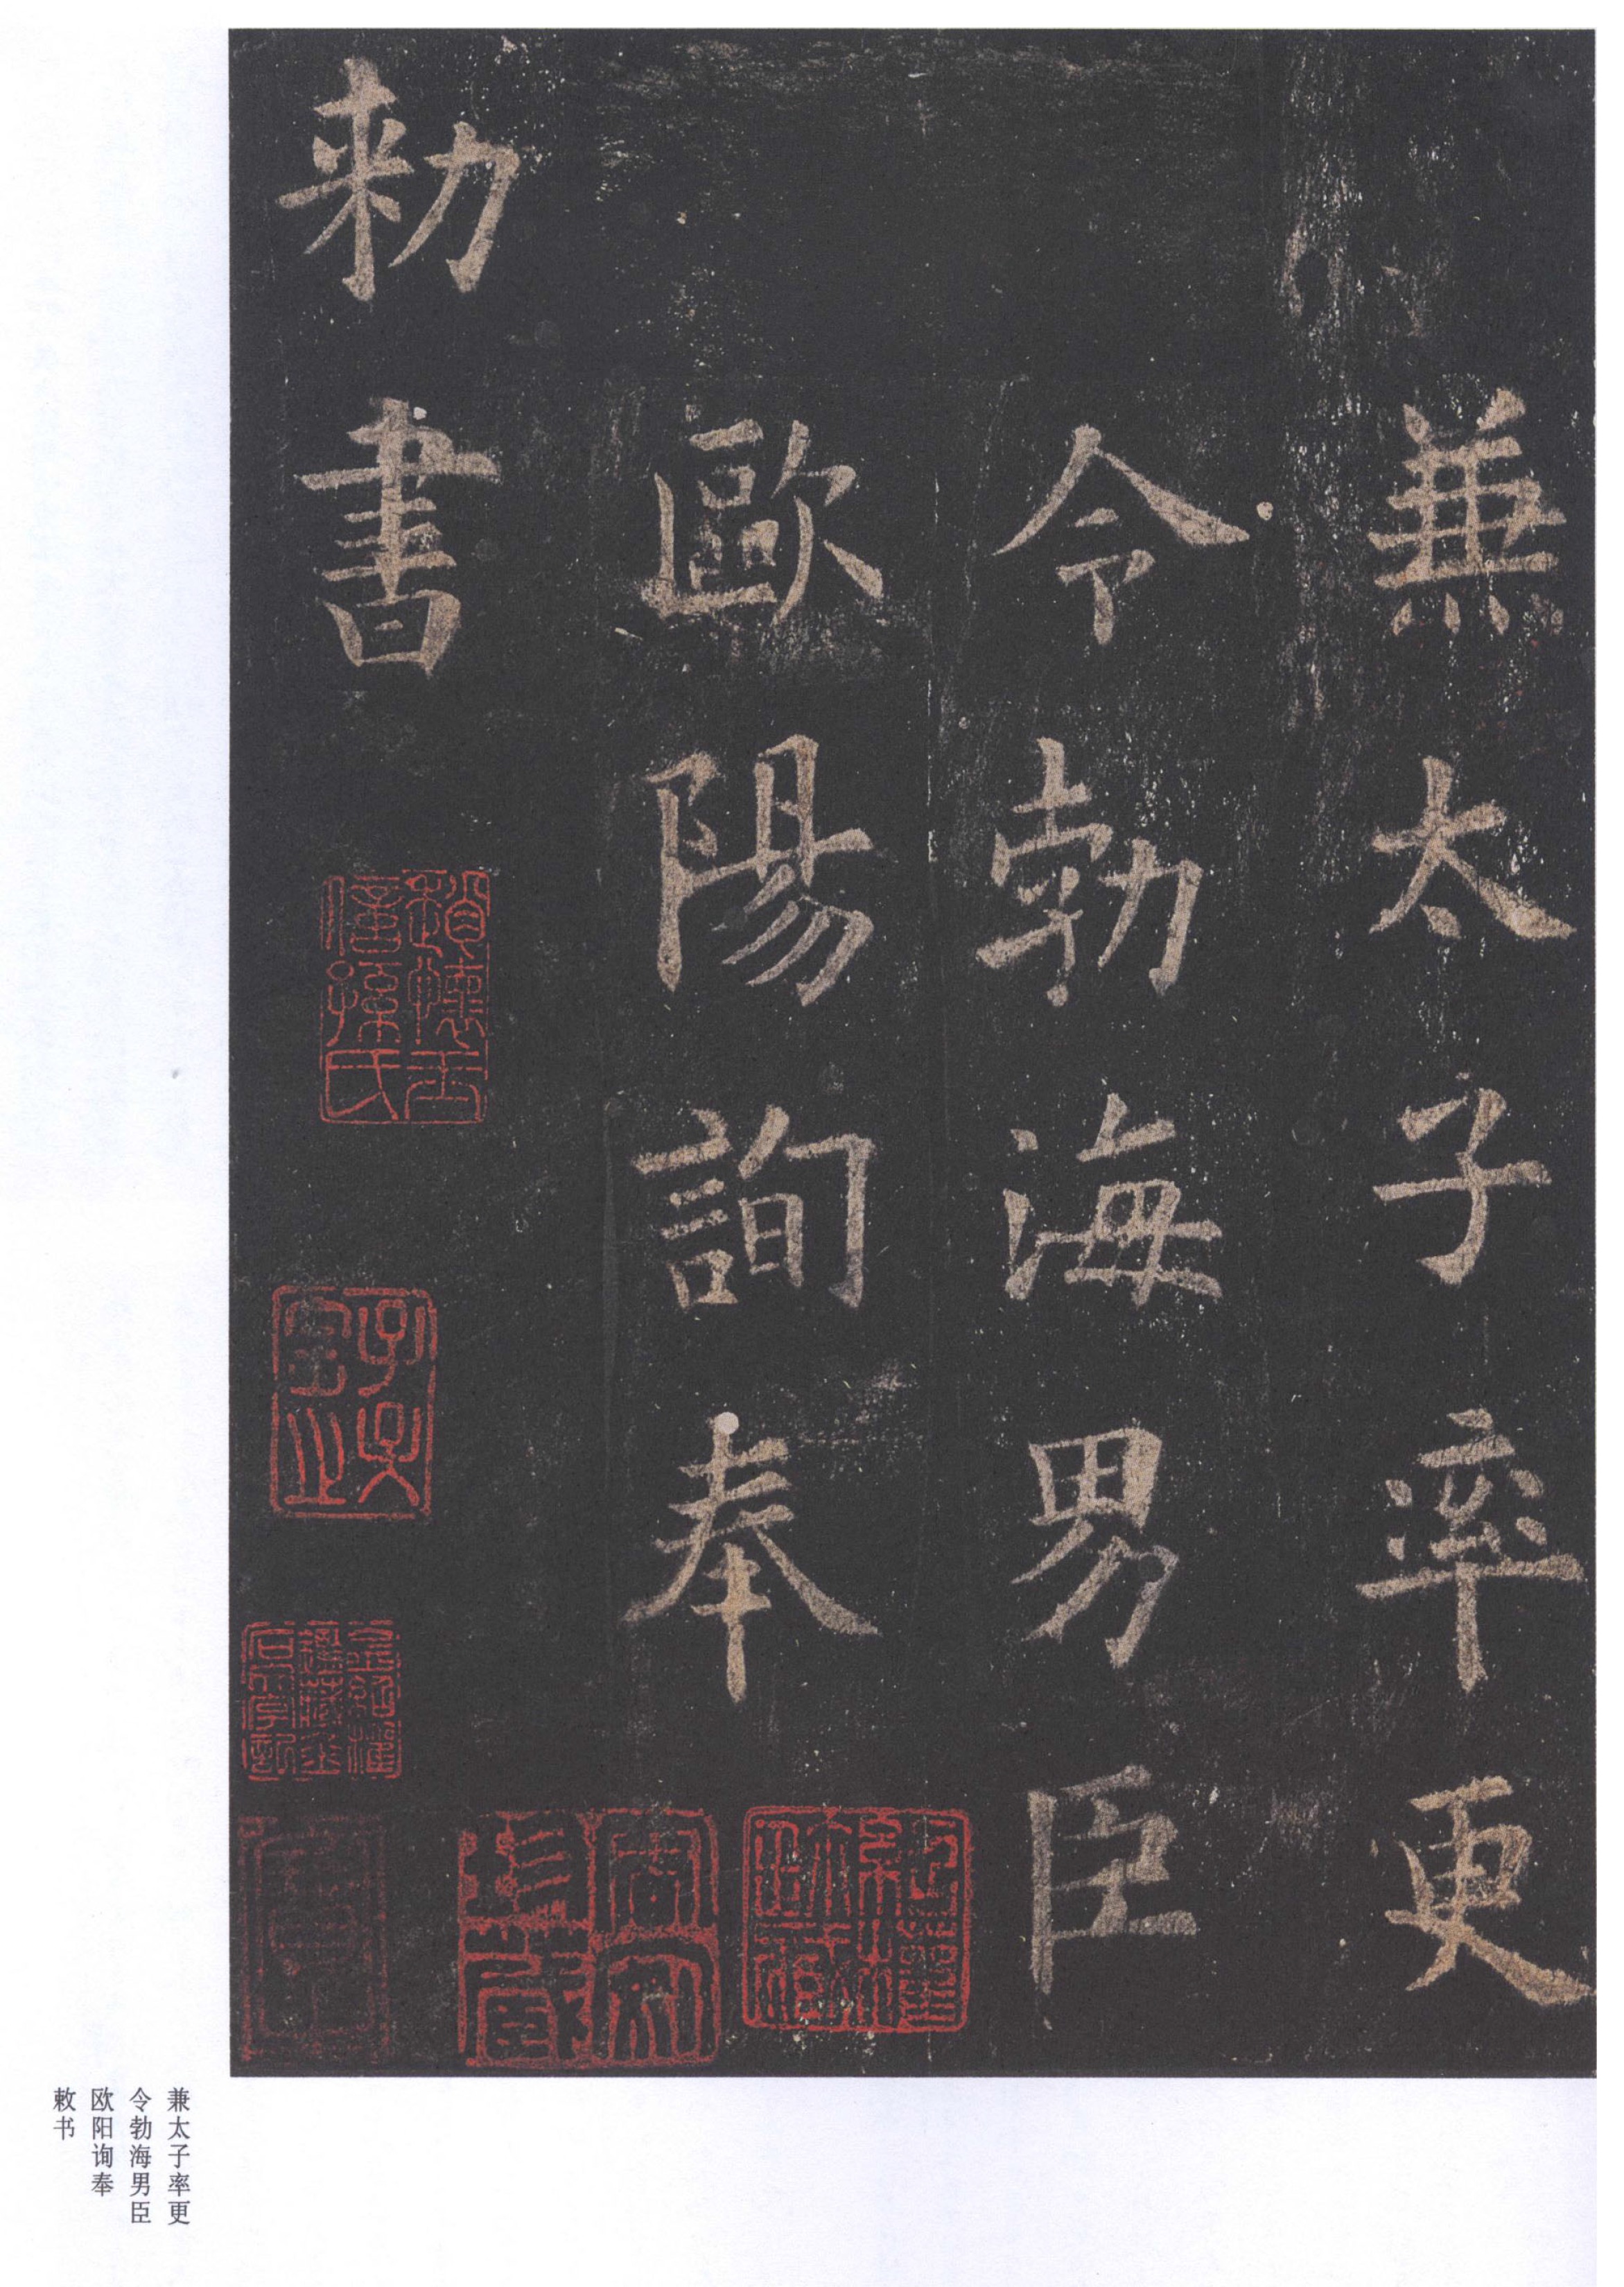 兼太子率更
令勃海男臣
歐陽詢奉
勑書
兼太子率更
令勃海男臣
欧阳询奉
敕书